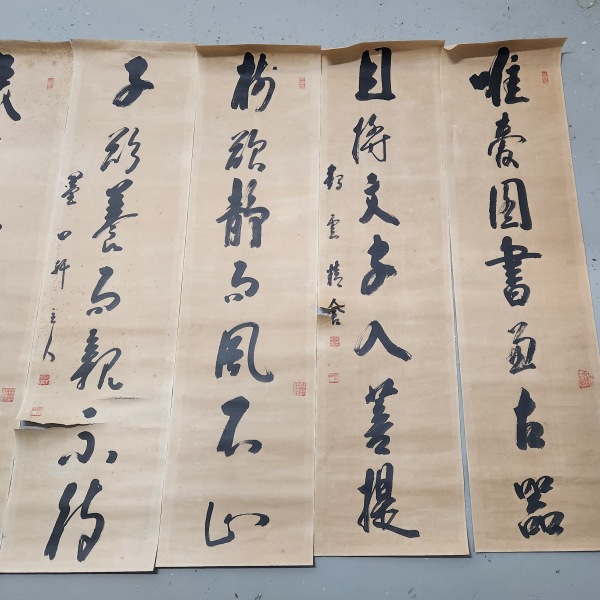 唯愛圖書兼古器
且將文字入菩提
雲精舍
樹欲靜而風不止
子欲養而親不待
墨田軒主人